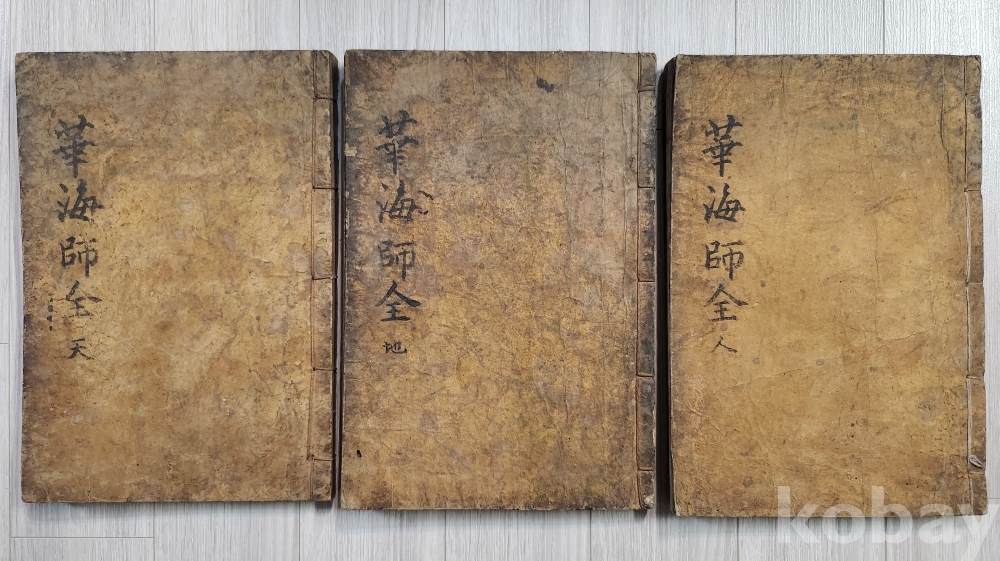 華海師全 天
華海師全 地
華海師全 人
kobay